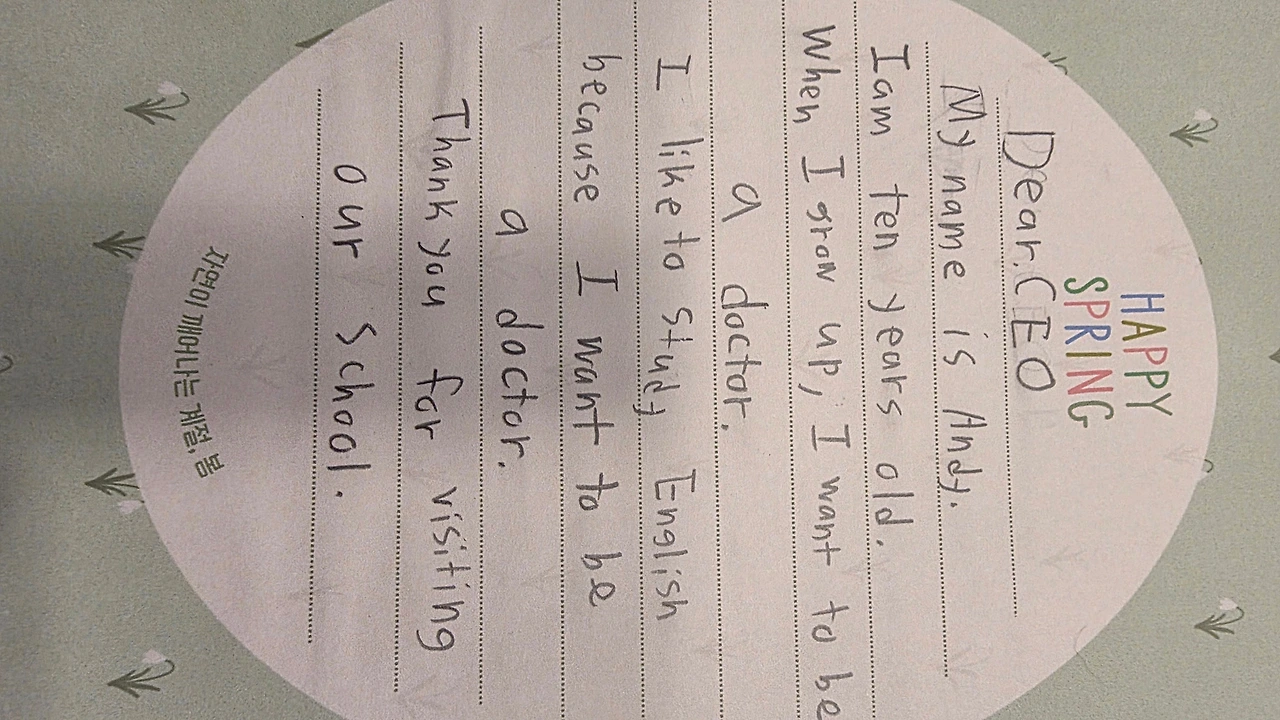 HAPPY
SPRING
Dear, CEO
My name is Andy.
I am ten years old.
When I grow up, I want to be
a doctor.
I like to study English
because I want to be
a doctor.
Thank you for visiting
our school.
자연이 깨어나는 계절, 봄